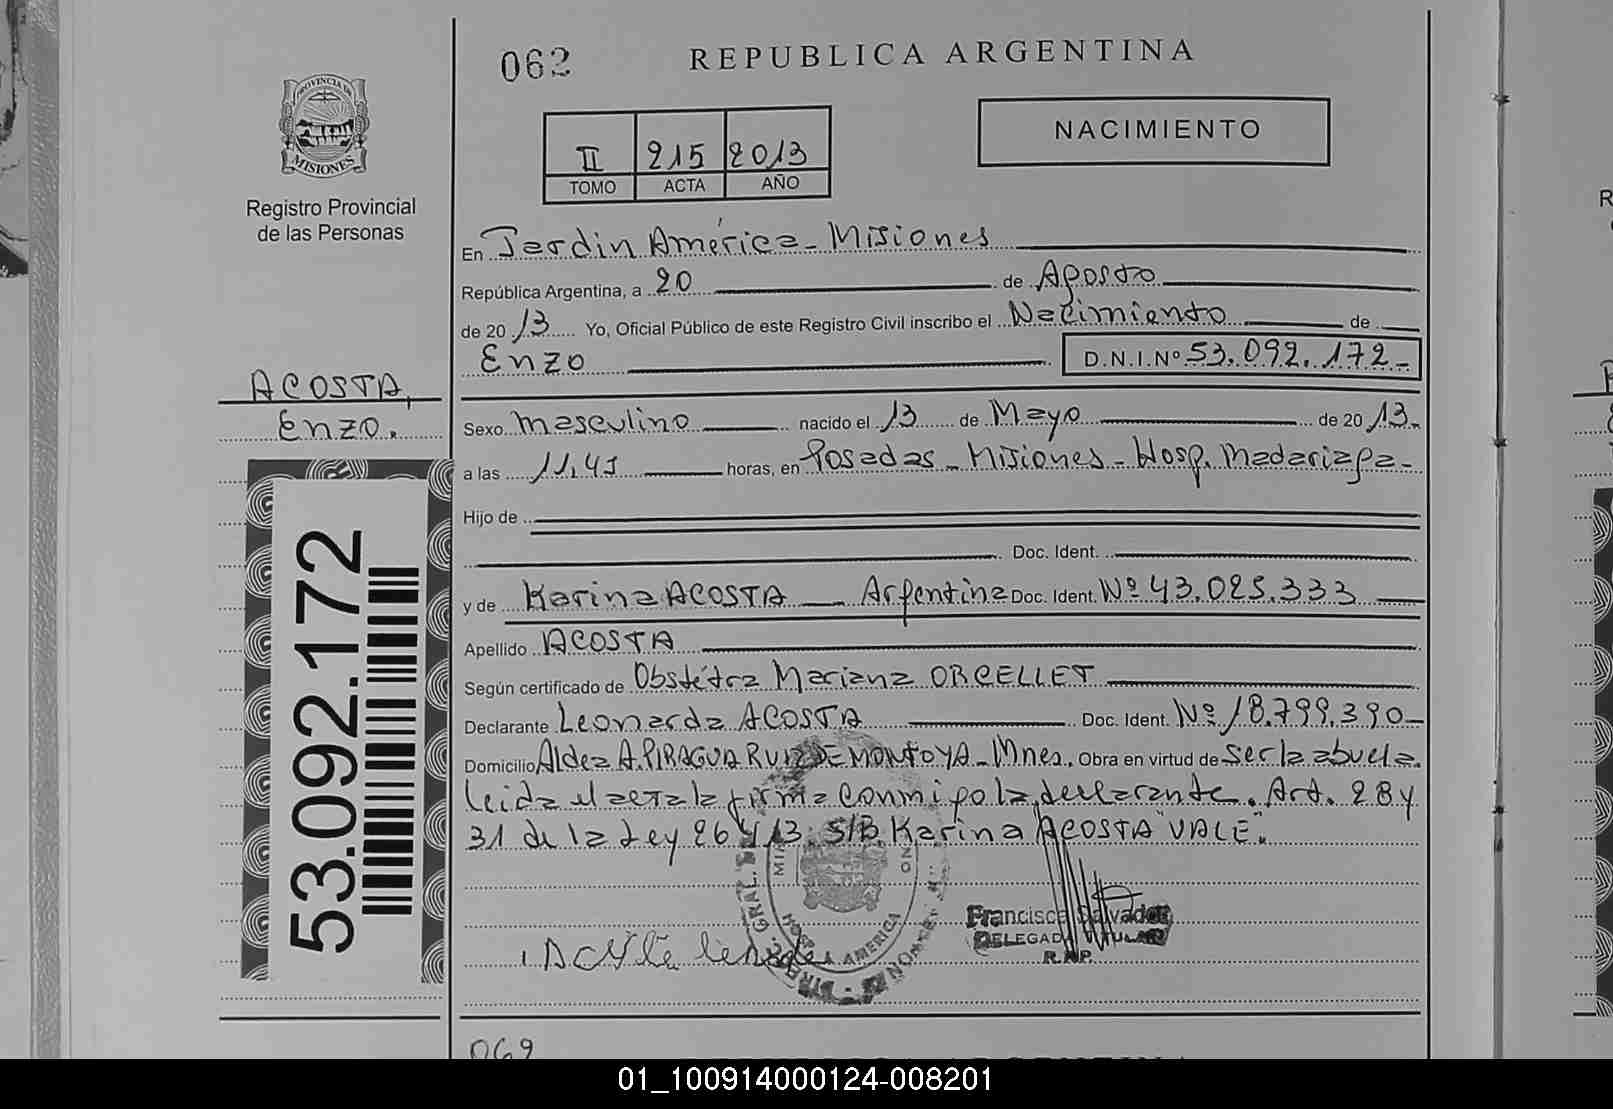 062
REPUBLICA ARGENTINA
PROVINCIA DE
MISIONES
Registro Provincial
de las Personas
II 215 2013
TOMO ACTA AÑO
NACIMIENTO
En Jardin América - Misiones
República Argentina, a 20 de Agosto
de 2013 Yo, Oficial Público de este Registro Civil inscribo el Nacimiento de
Enzo D.N.I.Nº 53.092.172-
ACOSTA,
Enzo.
Sexo masculino nacido el 13 de Mayo de 2013.
a las 11,41 horas, en Posadas - Misiones - Hosp. Madariaga-
Hijo de
Doc. Ident.
y de Karina ACOSTA Argentina Doc. Ident. Nº 43.025.333
Apellido ACOSTA
Según certificado de Obstétra Mariana ORCELLET
Declarante Leonarda ACOSTA Doc. Ident. Nº 18.799.390-
Domicilio Aldea A. PIRAGUA RUIZ DE MONTOYA - Mnes. Obra en virtud de ser la abuela.
Leida el acta la firma conmigo la declarante. Art. 28 y
31 de la Ley 26413. S/B Karina ACOSTA "VALE".
53.092.172
GRAL.
AMERICA
Francisca Salvador
DELEGADA TITULAR
R.P.P.
069
01_100914000124-008201